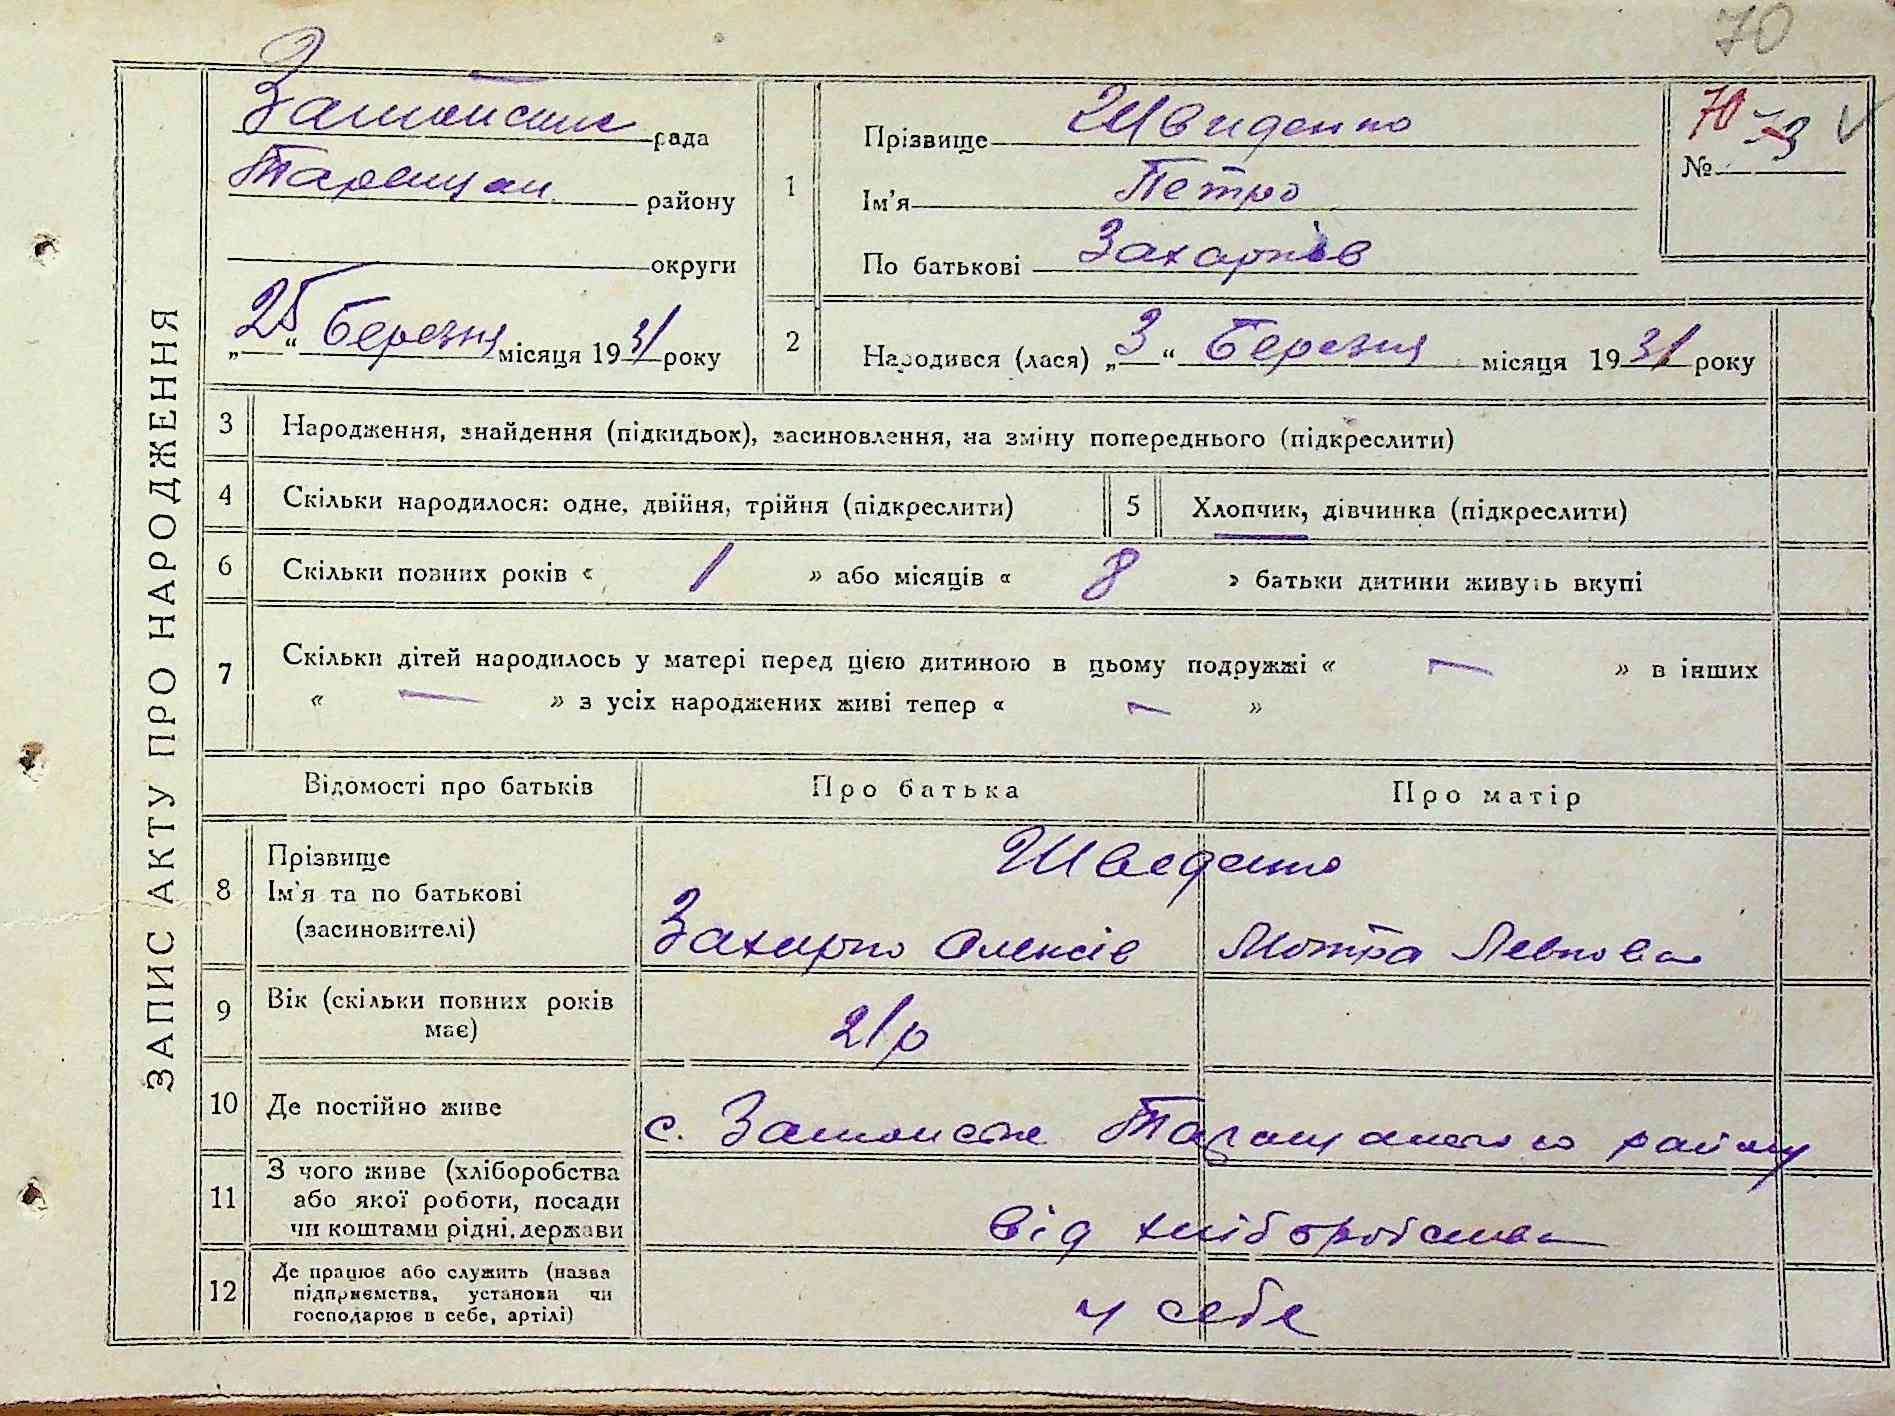 70
ЗАПИС АКТУ ПРО НАРОДЖЕННЯ
рада
району
округи
„25“ Березня місяця 1931 року
1
Прізвище Швиденко
Ім'я Петро
По батькові Захарків
70
№
2
Народився (лася) „3“ Березня місяця 1931 року
3 Народження, знайдення (підкидьок), засиновлення, на зміну попереднього (підкреслити)
4 Скільки народилося: одне, двійня, трійня (підкреслити)
5 Хлопчик, дівчинка (підкреслити)
6 Скільки повних років « 1 » або місяців « 8 » батьки дитини живуть вкупі
7 Скільки дітей народилось у матері перед цією дитиною в цьому подружжі « — » в інших
« — » з усіх народжених живі тепер « — »
Відомості про батьків Про батька Про матір
8 Прізвище
Ім'я та по батькові
(засиновителі)
Шведенко
Захарко Олексів Мотра Левкова
9 Вік (скільки повних років
має)
21р
10 Де постійно живе
с. Затонське Таращанського району
11 З чого живе (хліборобства
або якої роботи, посади
чи коштами рідні, держави
Від хліборобства
12 Де працює або служить (назва
підприємства, установи чи
господарює в себе, артілі)
у себе